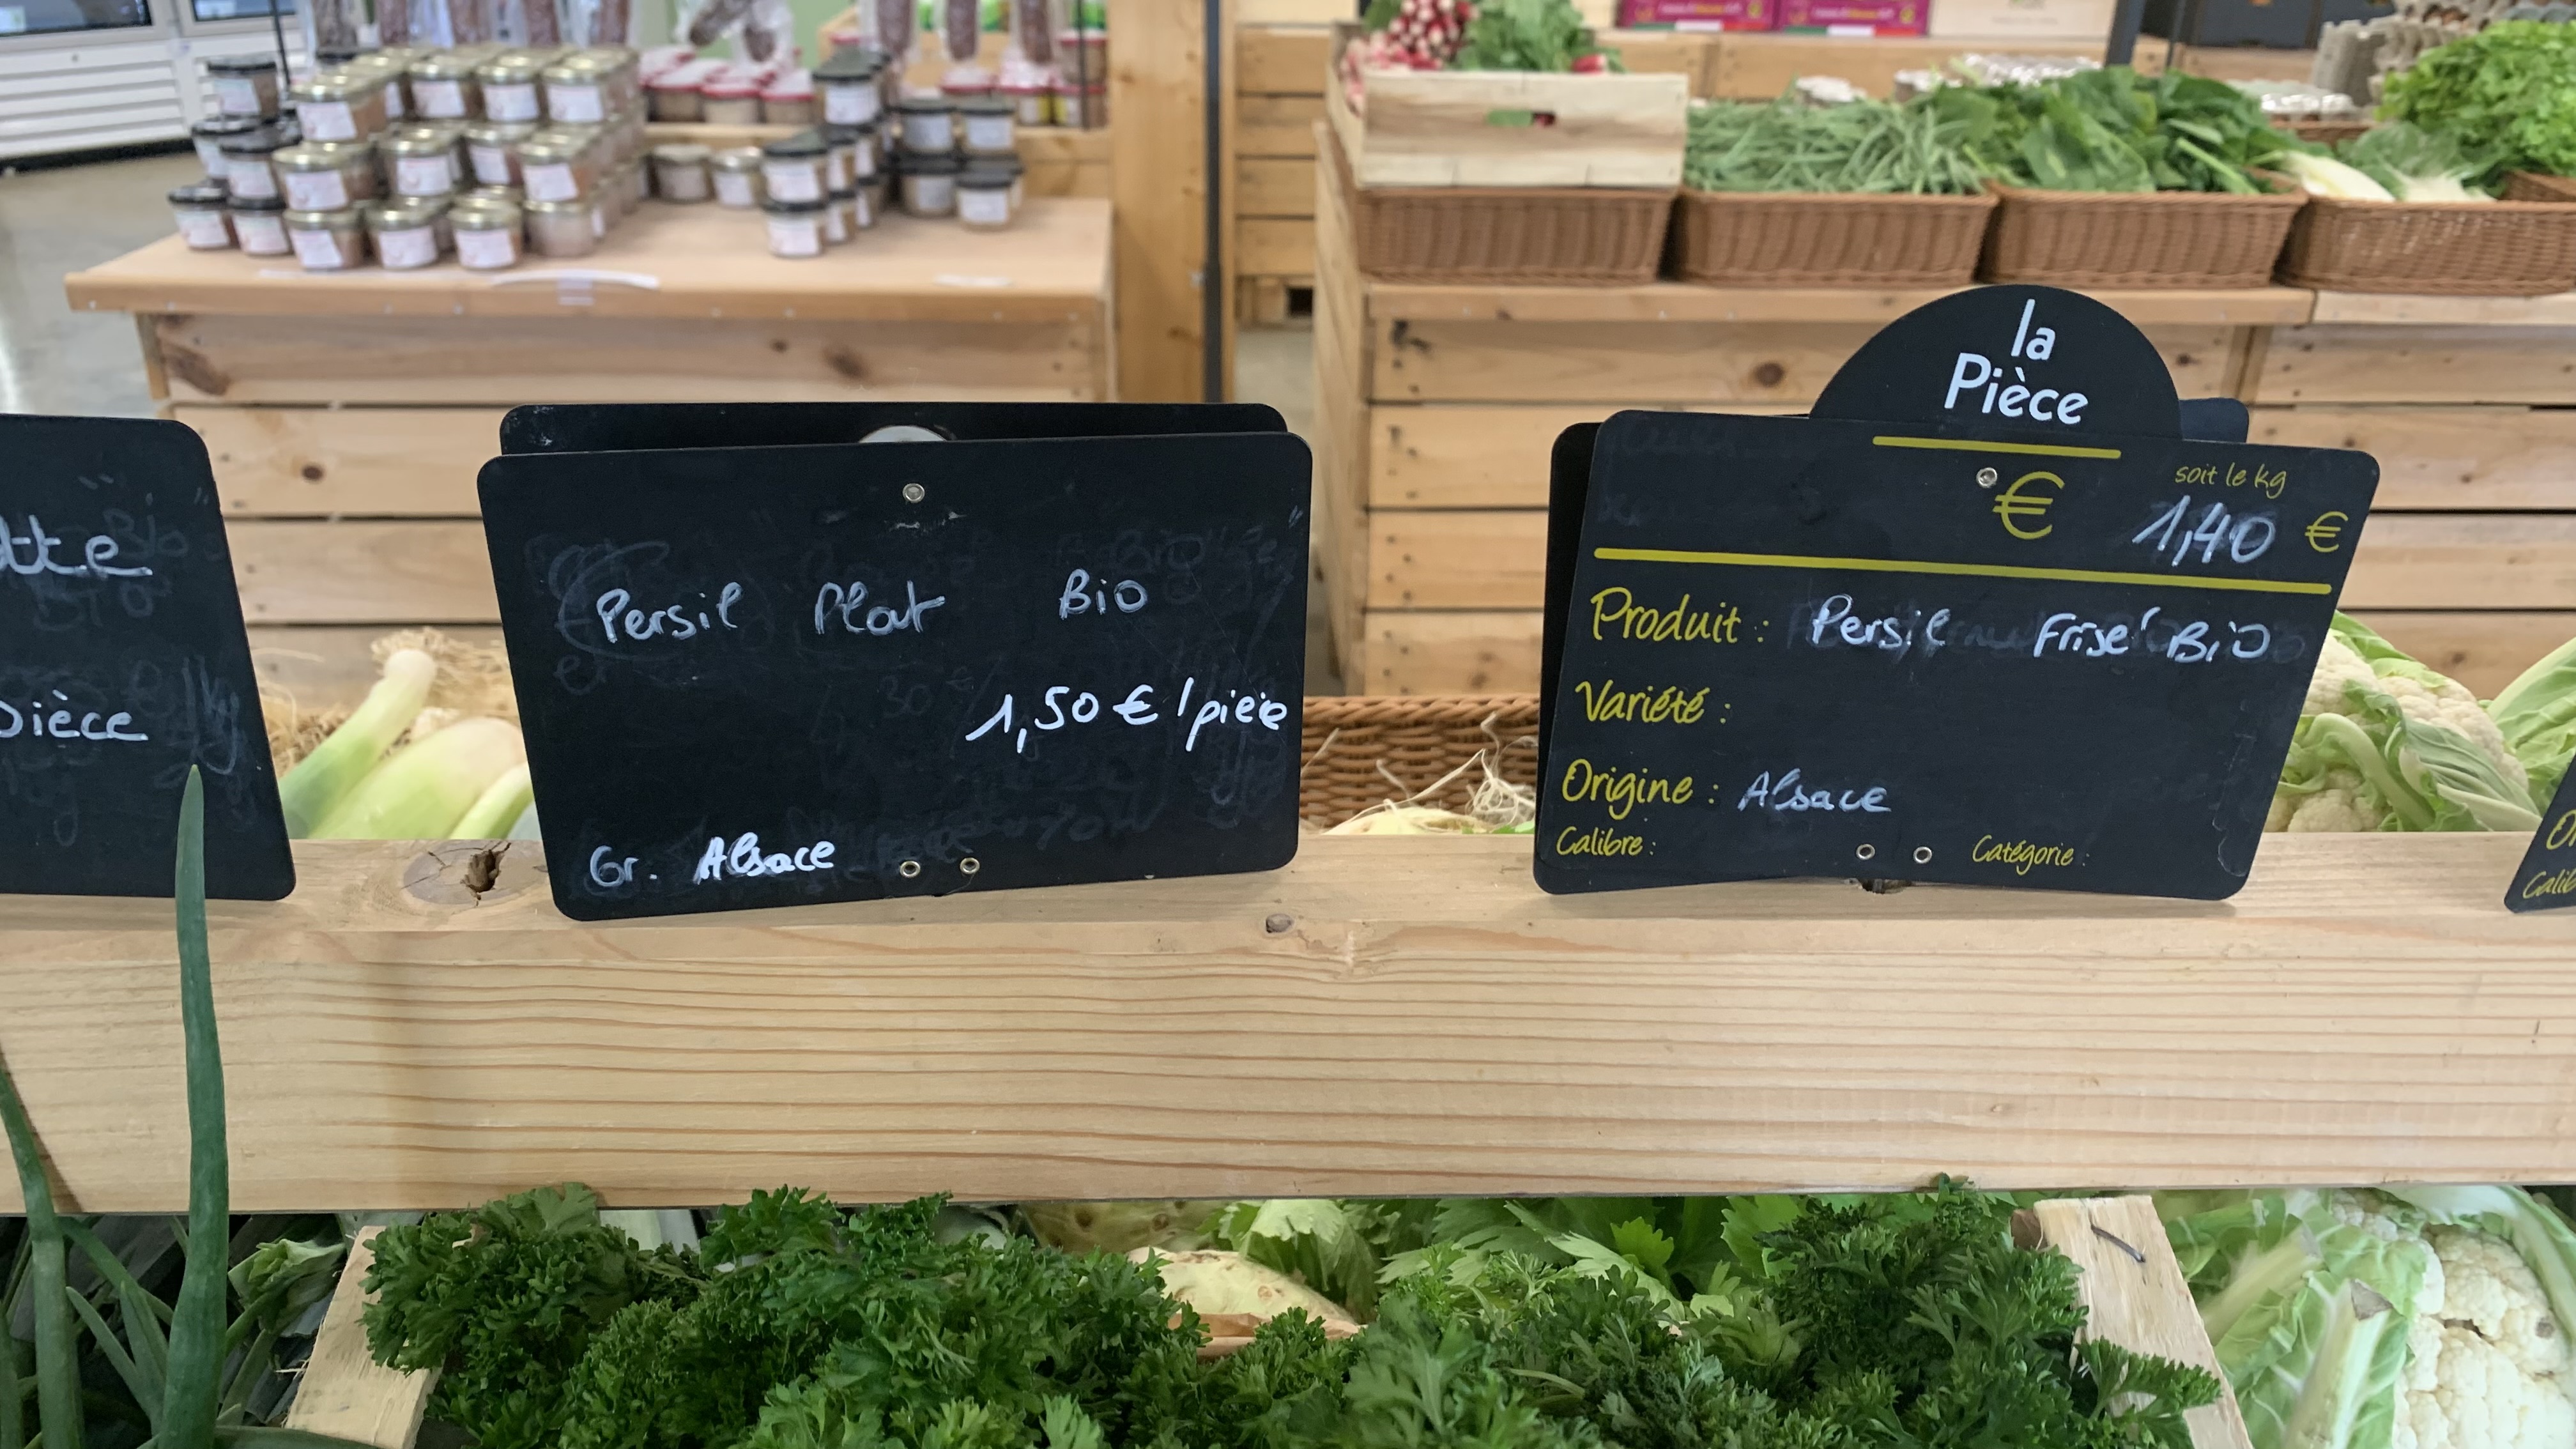 pièce
Persil Plat Bio
1,50 € / pièce
Gr. Alsace
la
Pièce
soit le kg
€ 1,40 €
Produit : Persil Frisé Bio
Variété :
Origine : Alsace
Calibre : Catégorie :